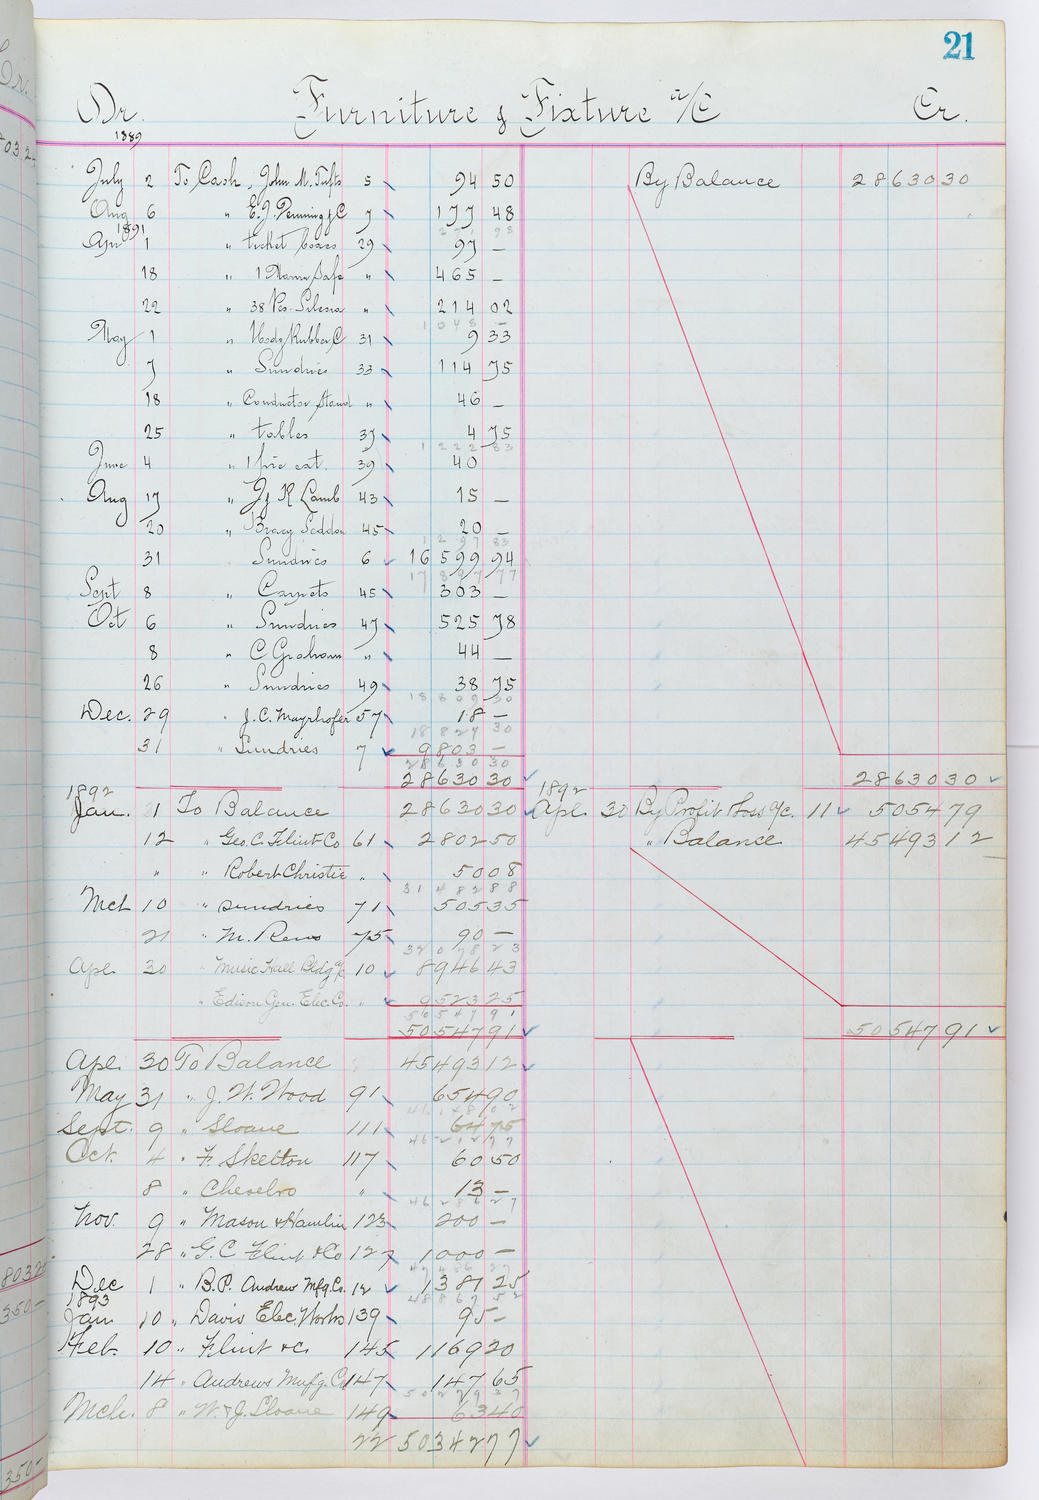 21
Dr. Furniture & Fixture a/c Cr.
1889
July 2 To Cash, John M. Tufts 5 94 50 By Balance 28630 30
Aug 6 " E.J. Denning & C 7 177 48
271 98
1891
Apr 1 " ticket boxes 29 97 —
18 " 1 Safe " 465 —
22 " 38 Pcs. Silesia " 214 02
1048 —
May 1 " Rubber C 31 9 33
7 " Sundries 33 114 75
18 " Conductor Stand " 46 —
25 " tables 37 4 75
1222 83
June 4 " 1 fire ext. 39 40
Aug 17 " J & R Lamb 43 15 —
20 " Seddon 45 20 —
1297 83
31 Sundries 6 16 599 94
17 897 77
Sept 8 " Carpets 45 303 —
Oct 6 " Sundries 47 525 78
8 " C Graham " 44 —
26 " Sundries 49 38 75
18809 30
Dec. 29 " J. C. Mayrhofer 57 18 —
18827 30
31 " Sundries 7 9803 —
28630 30
28630 30 28630 30
1892 1892
Jan. 1 To Balance 28630 30 Apl. 30 By Profit & Loss a/c. 11 5054 79
12 " Geo. C. Flint Co 61 2802 50 " Balance 45493 12
" " Robert Christie " 50 08
31482 88
Mch 10 " Sundries 71 505 35
21 " M. 75 90 —
32078 23
Apl. 30 " Music Hall Bldg a/c 10 8946 43
" Edison Gen. Elec. Co. " 9523 25
50547 91
50547 91 50547 91
Apl. 30 To Balance 45493 12
May 31 " J. W. Wood 91 654 90
46148 02
Sept. 9 " Sloane 111 64 75
46212 77
Oct. 4 " F. Skelton 117 60 50
8 " " 13 —
46286 27
Nov. 9 " Mason & Hamlin 123 200 —
28 " G. C Flint & Co 127 1000 —
47486 27
Dec 1 " B. P. Andrew Mfg. Co. 12 1381 25
48867 52
1893
Jan 10 " Davis Elec. Works 139 95 —
Feb. 10 " Flint & C. 145 1169 20
14 " Andrews Mufg. Co 147 147 65
50279 37
Mch. 8 " W. & J. Sloane 149 63 40
22 50342 77